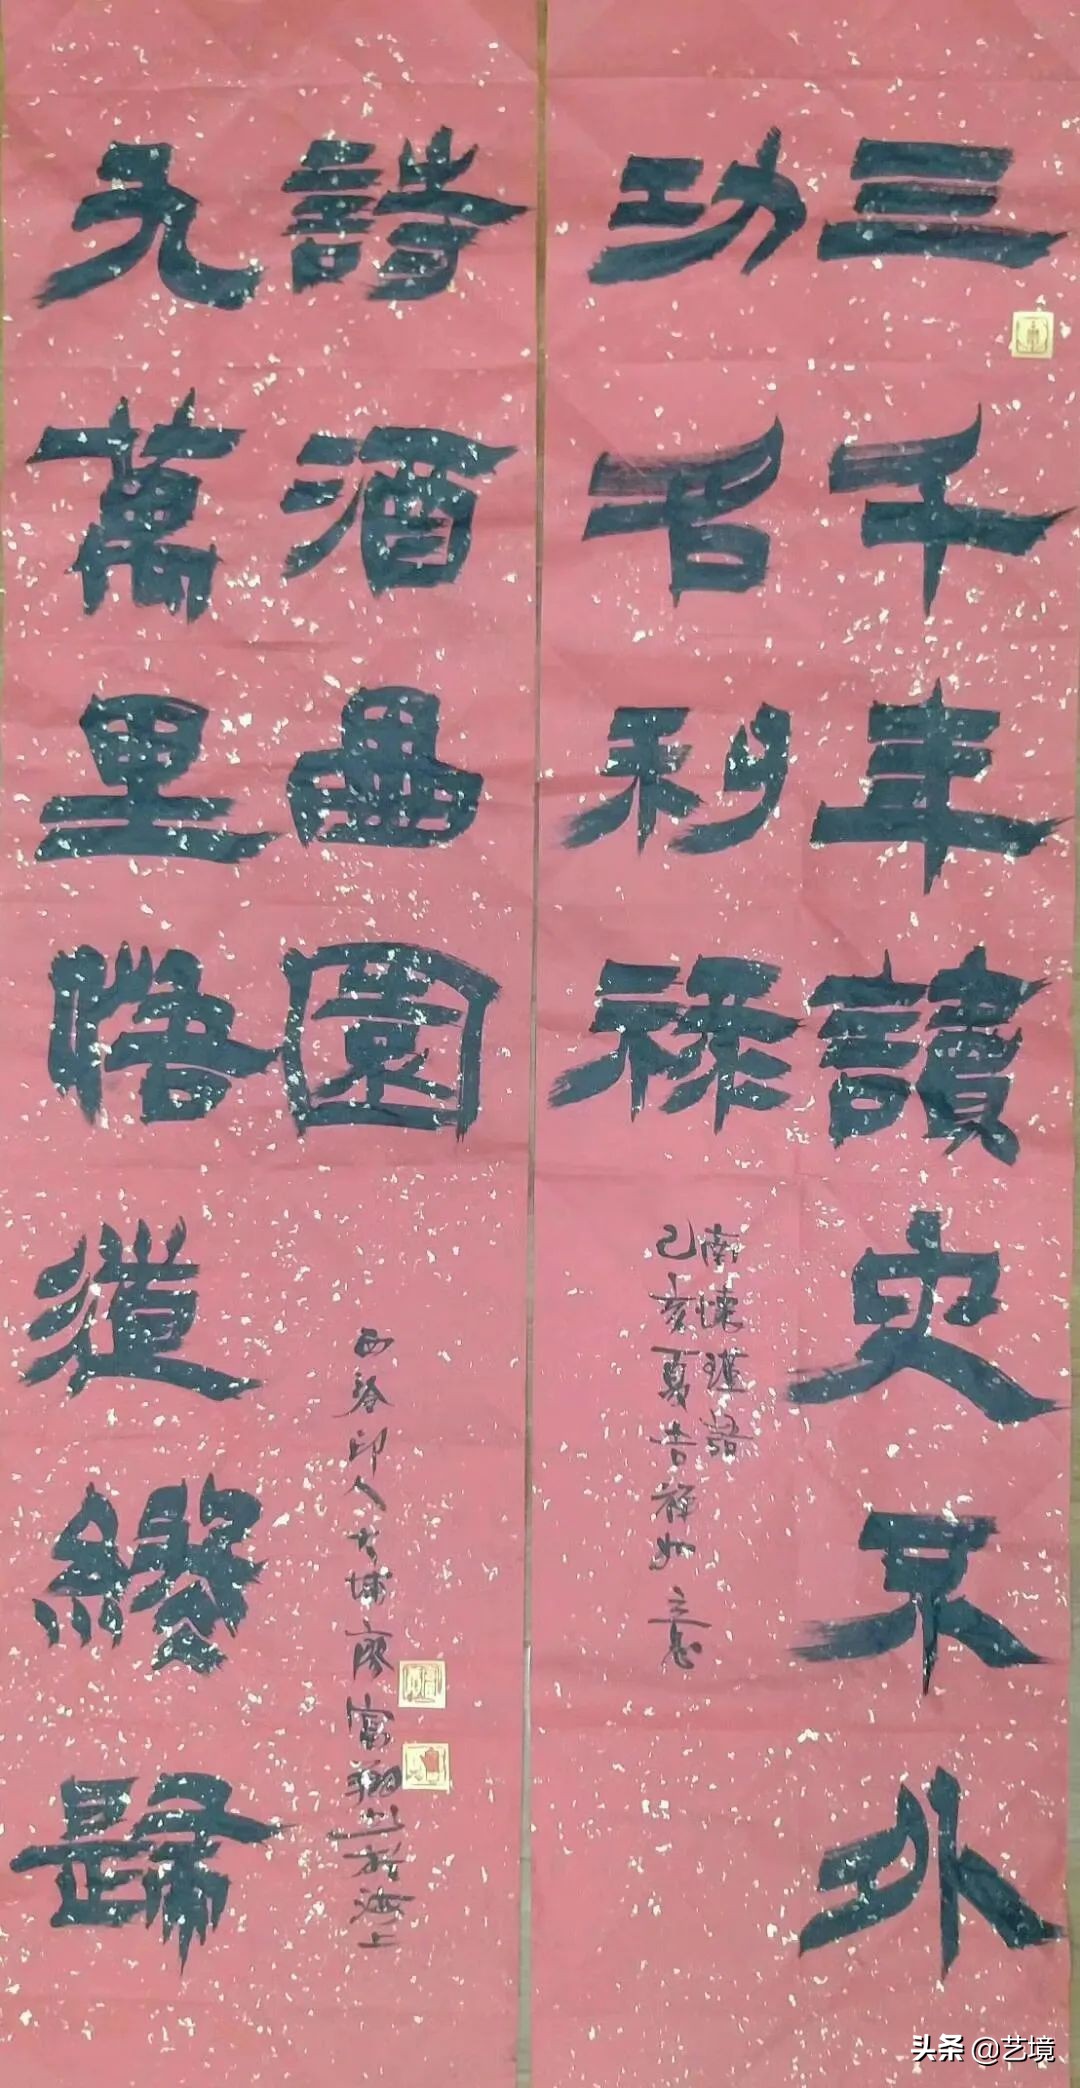 三千年讀史不外
功名利祿
南懷瑾語
己亥夏吉祥如意
九萬里悟道緣歸
詩酒畾園
西泠印人大埔廖富翔於海上
头条 @艺境